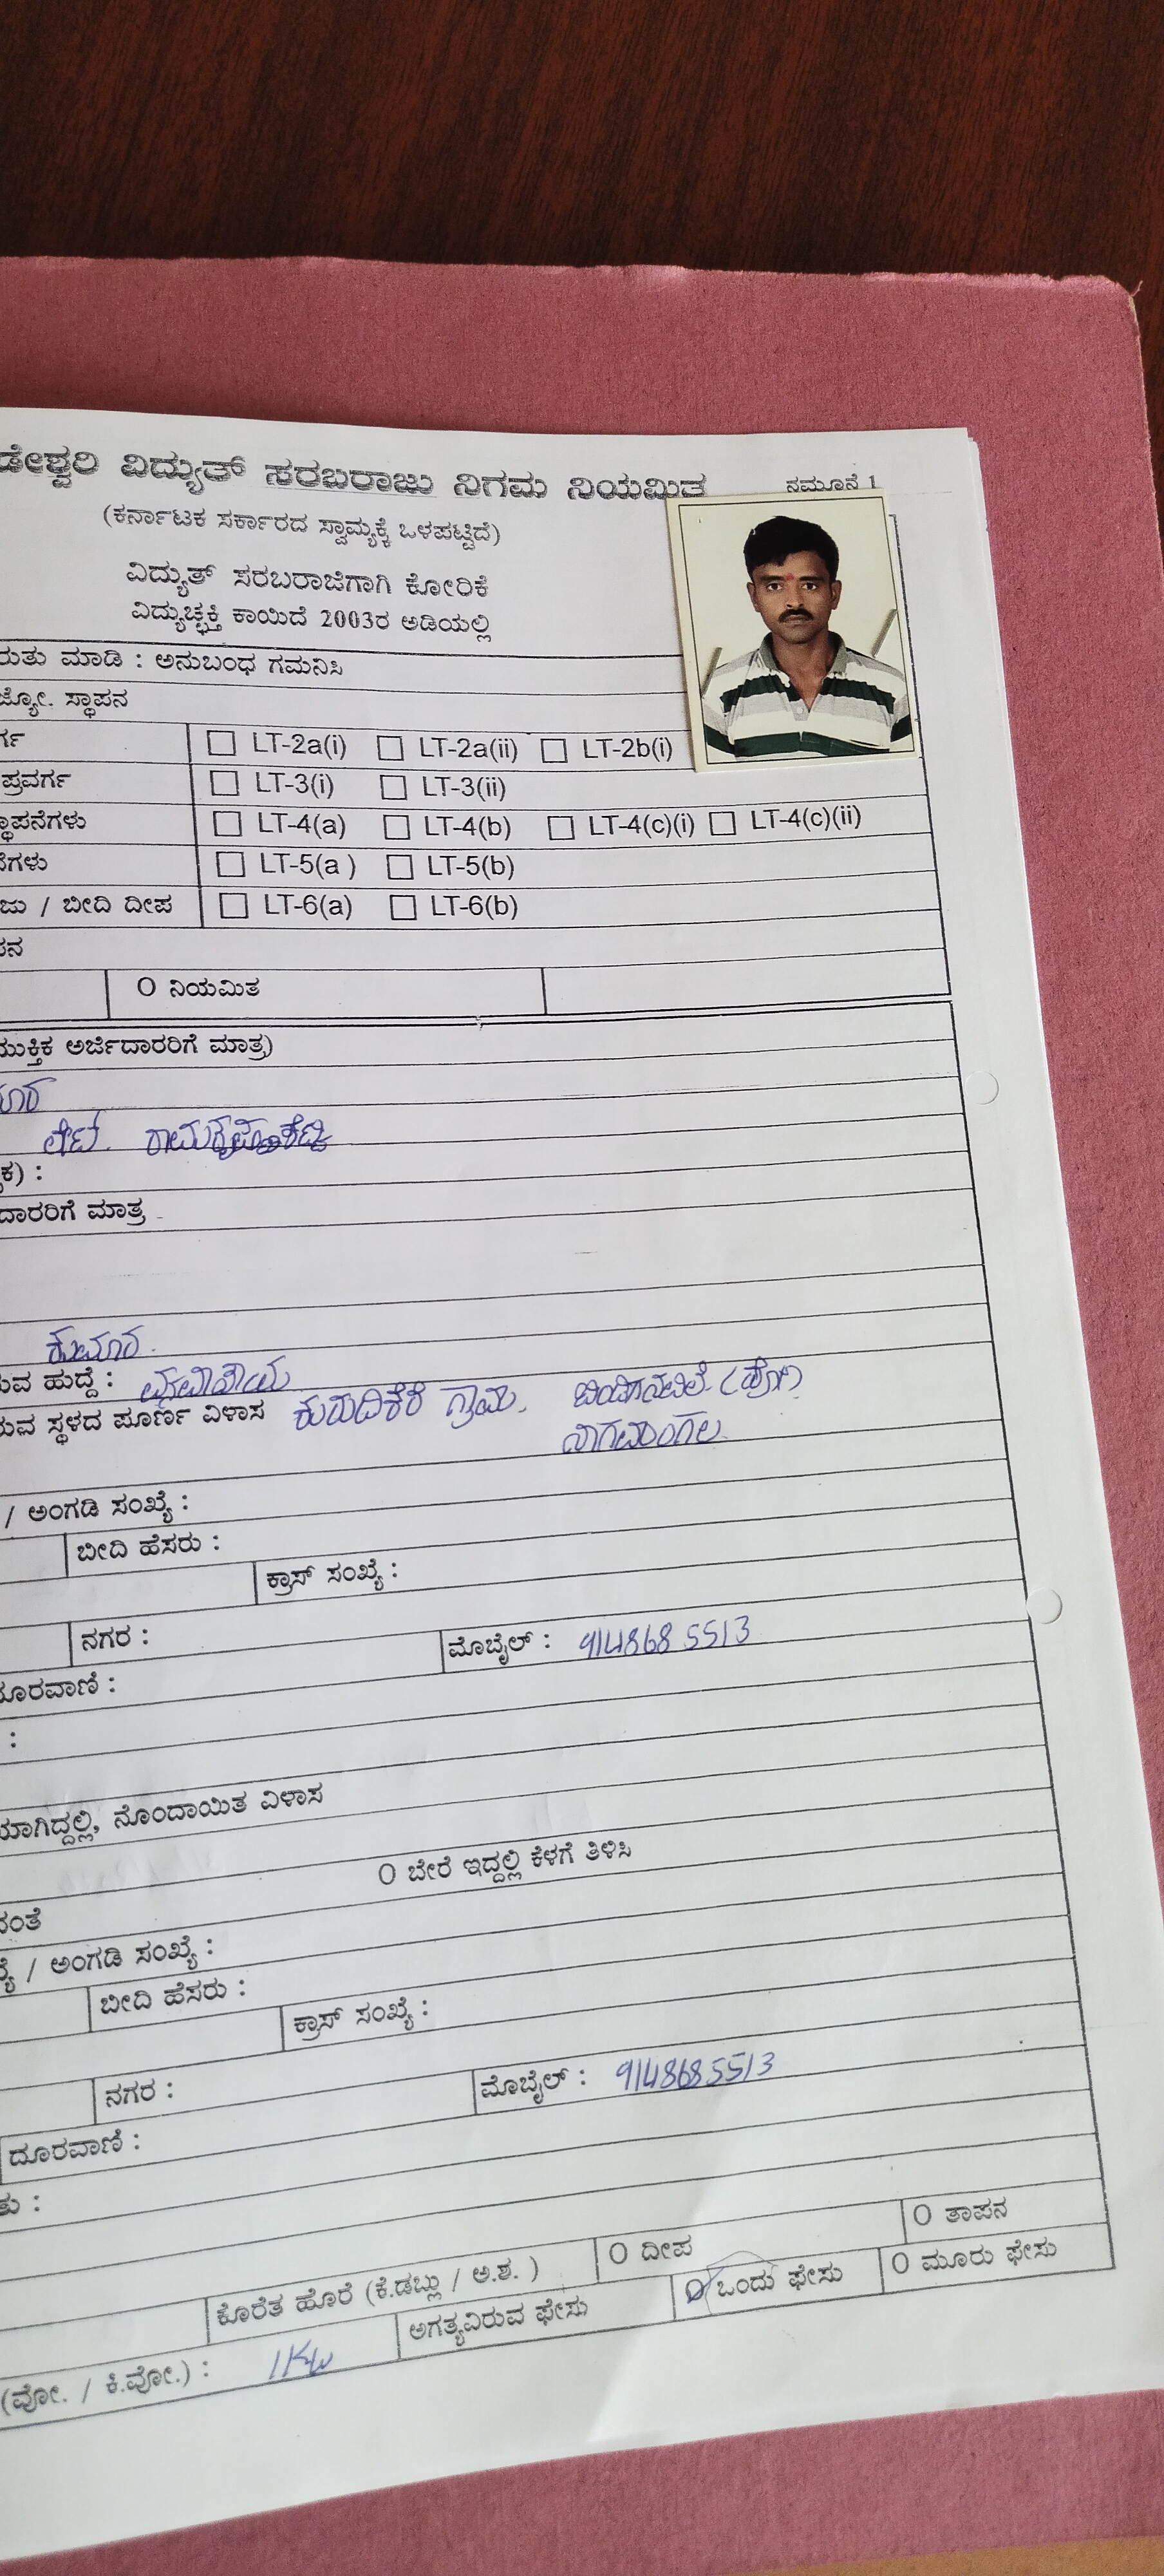 ಡೇಶ್ವರಿ ವಿದ್ಯುತ್ ಸರಬರಾಜು ನಿಗಮ ನಿಯಮಿತ
ನಮೂನೆ 1
(ಕರ್ನಾಟಕ ಸರ್ಕಾರದ ಸ್ವಾಮ್ಯಕ್ಕೆ ಒಳಪಟ್ಟಿದೆ)
ವಿದ್ಯುತ್ ಸರಬರಾಜಿಗಾಗಿ ಕೋರಿಕೆ
ವಿದ್ಯುಚ್ಛಕ್ತಿ ಕಾಯಿದೆ 2003ರ ಅಡಿಯಲ್ಲಿ
ರುತು ಮಾಡಿ : ಅನುಬಂಧ ಗಮನಿಸಿ
ಜ್ಯೋ. ಸ್ಥಾಪನ
ರ್ಗ LT-2a(i) LT-2a(ii) LT-2b(i)
ಪ್ರವರ್ಗ LT-3(i) LT-3(ii)
ಥಾಪನೆಗಳು LT-4(a) LT-4(b) LT-4(c)(i) LT-4(c)(ii)
ನೆಗಳು LT-5(a) LT-5(b)
ಜು / ಬೀದಿ ದೀಪ LT-6(a) LT-6(b)
ಪನ
O ನಿಯಮಿತ
ಮುಕ್ತಿಕ ಅರ್ಜಿದಾರರಿಗೆ ಮಾತ್ರ)
ಮಾರ
ಲೇಟ್.
ಕ) :
ದಾರರಿಗೆ ಮಾತ್ರ
ಕುಮಾರ.
ುವ ಹುದ್ದೆ : ವ್ಯವಸಾಯ
ುವ ಸ್ಥಳದ ಪೂರ್ಣ ವಿಳಾಸ ಕುರುದಿಕೆರೆ ಗ್ರಾಮ, ಬಿಂಡಿಗನವಿಲೆ (ಹೋ)
ನಾಗಮಂಗಲ
/ ಅಂಗಡಿ ಸಂಖ್ಯೆ :
ಬೀದಿ ಹೆಸರು :
ಕ್ರಾಸ್ ಸಂಖ್ಯೆ :
ನಗರ : ಮೊಬೈಲ್ : 9148685513
ದೂರವಾಣಿ :
:
ಯಾಗಿದ್ದಲ್ಲಿ, ನೊಂದಾಯಿತ ವಿಳಾಸ
O ಬೇರೆ ಇದ್ದಲ್ಲಿ ಕೆಳಗೆ ತಿಳಿಸಿ
ದಂತೆ
ಖ್ಯೆ / ಅಂಗಡಿ ಸಂಖ್ಯೆ :
ಬೀದಿ ಹೆಸರು :
ಕ್ರಾಸ್ ಸಂಖ್ಯೆ :
ನಗರ : ಮೊಬೈಲ್ : 9148685513
ದೂರವಾಣಿ :
ತು :
ಕೊರೆತ ಹೊರೆ (ಕೆ.ಡಬ್ಲು / ಅ.ಶ. ) O ದೀಪ O ತಾಪನ
(ವೋ. / ಕಿ.ವೋ.) : 1KW ಅಗತ್ಯವಿರುವ ಫೇಸು O ಒಂದು ಫೇಸು O ಮೂರು ಫೇಸು